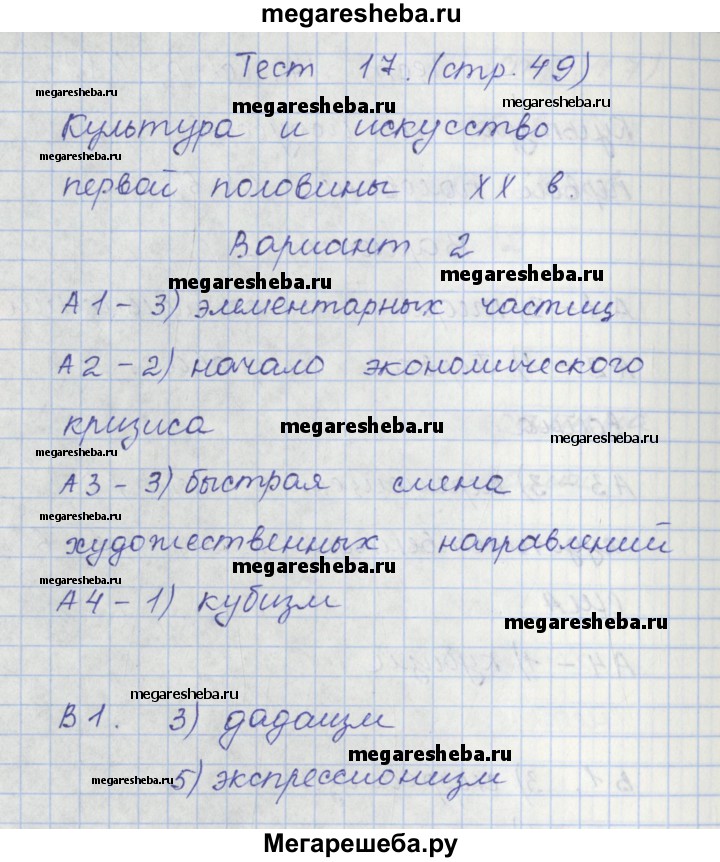 megaresheba.ru
Тест 17. (стр. 49)
megaresheba.ru megaresheba.ru megaresheba.ru
Культура и искусство
megaresheba.ru
первой половины XX в.
Вариант 2
megaresheba.ru megaresheba.ru
А1 - 3) элементарных частиц
А2 - 2) начало экономического
кризиса megaresheba.ru megaresheba.ru
megaresheba.ru
А3 - 3) быстрая смена
megaresheba.ru
художественных направлений
megaresheba.ru
А4 - 1) кубизм megaresheba.ru
megaresheba.ru
В1. 3) дадаизм
megaresheba.ru
megaresheba.ru 5) экспрессионизм
Мегарешеба.ру